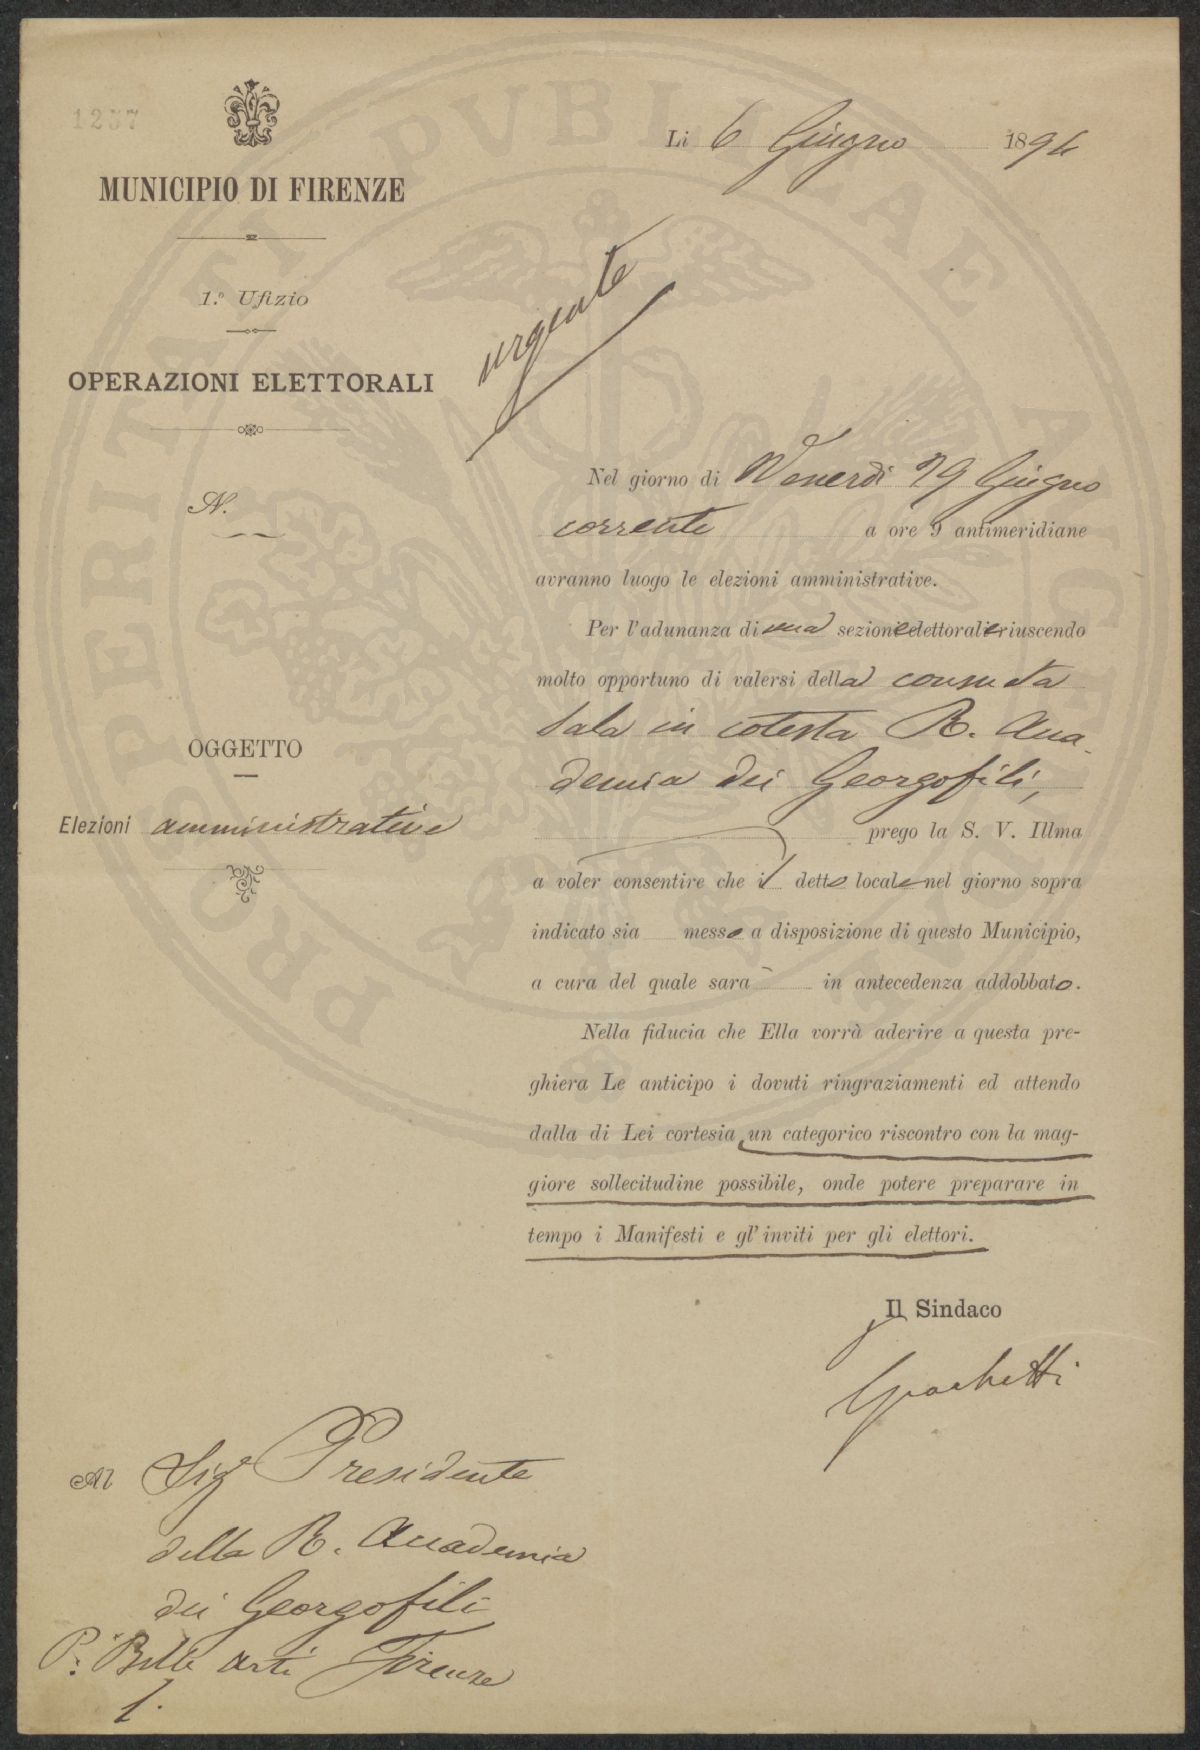 MUNICIPIO DI FIRENZE
1.º Ufizio
OPERAZIONI ELETTORALI
N.
OGGETTO
Elezioni amministrative
Li 6 Giugno 1894
urgente
Nel giorno di Venerdì 29 Giugno
corrente a ore 9 antimeridiane
avranno luogo le elezioni amministrative.
Per l'adunanza di una sezione elettorale riuscendo
molto opportuno di valersi della consueta
Sala in cotesta R. Acca-
demia dei Georgofili,
prego la S. V. Illma
a voler consentire che il detto locale nel giorno sopra
indicato sia messo a disposizione di questo Municipio,
a cura del quale sarà in antecedenza addobbato.
Nella fiducia che Ella vorrà aderire a questa pre-
ghiera Le anticipo i dovuti ringraziamenti ed attendo
dalla di Lei cortesia un categorico riscontro con la mag-
giore sollecitudine possibile, onde potere preparare in
tempo i Manifesti e gl'inviti per gli elettori.
Il Sindaco
Al Sigr Presidente
della R. Accademia
dei Georgofili
P.a Belle Arti Firenze
1.
PROSPERITATI PVBLICAE AVGENDAE